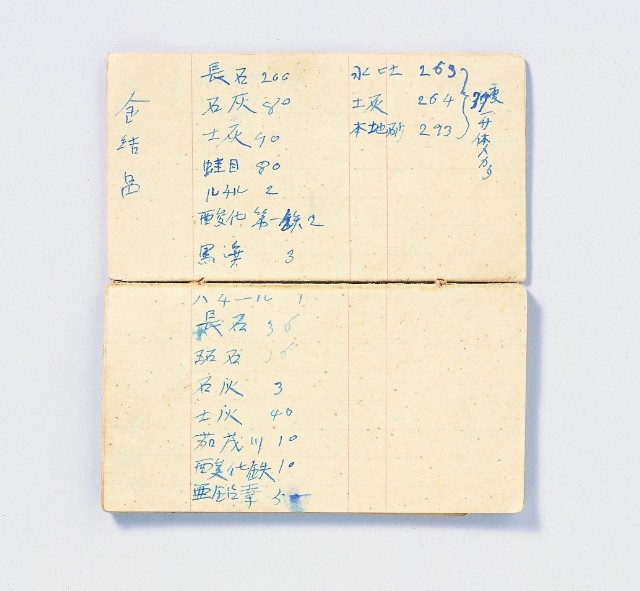 長石 200
石灰 80
土灰 90
蛙目 80
ルチル 2
酸化第一鉄 2
黒浜 3
水土 263
土灰 264
本地砂 293
ハチール 1
長石 35
珪石 15
石灰 3
土灰 40
加茂川 10
酸化鉄 10
亜鉛華 5